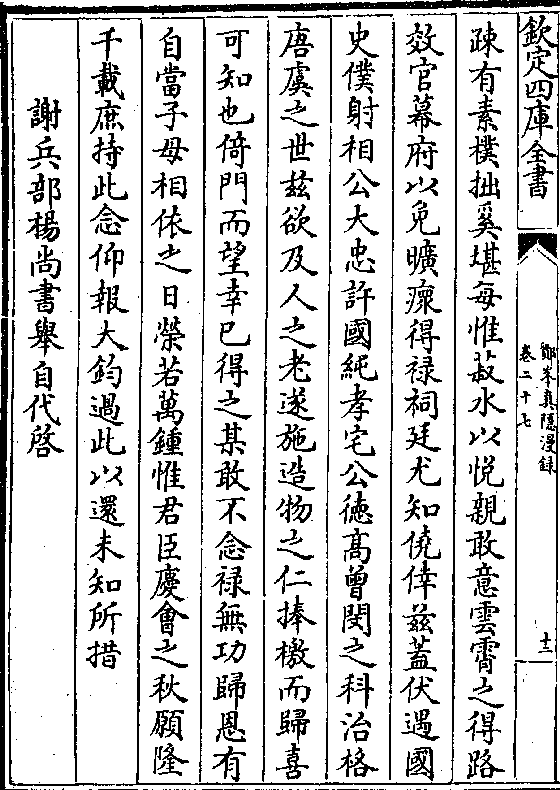 欽定四庫全書
鄮峯真隱漫録
卷二十七
十二
疎有素樸拙奚堪每惟菽水以悦親敢意雲霄之得路
效官幕府以免曠瘝得禄祠廷尤知僥倖兹蓋伏遇國
史僕射相公大忠許國純孝宅公徳髙曽閔之科治格
唐虞之世兹欲及人之老遂施造物之仁捧檄而歸喜
可知也倚門而望幸已得之某敢不念禄無功歸恩有
自當子母相依之日榮若萬鍾惟君臣慶會之秋願隆
千載庶持此念仰報大鈞過此以還未知所措
謝兵部楊尚書舉自代啓